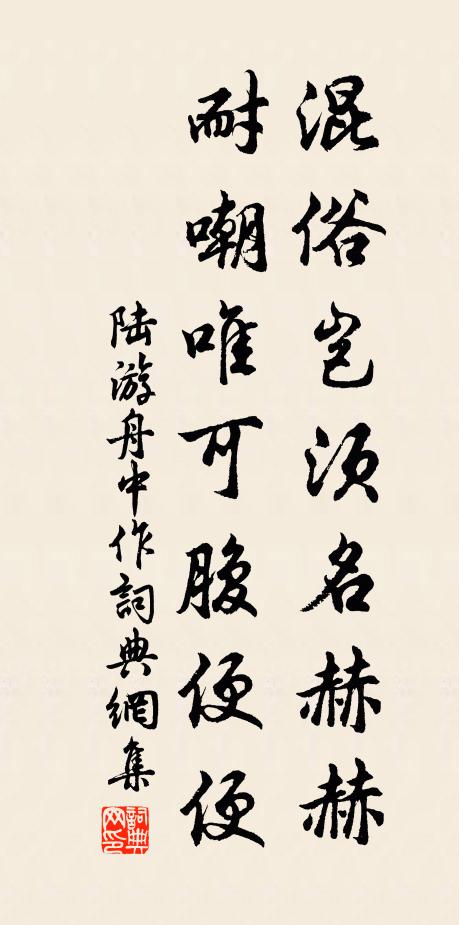 混俗岂須名赫赫
耐嘲唯可腹便便
陆游舟中作詞典網集
詞典网印